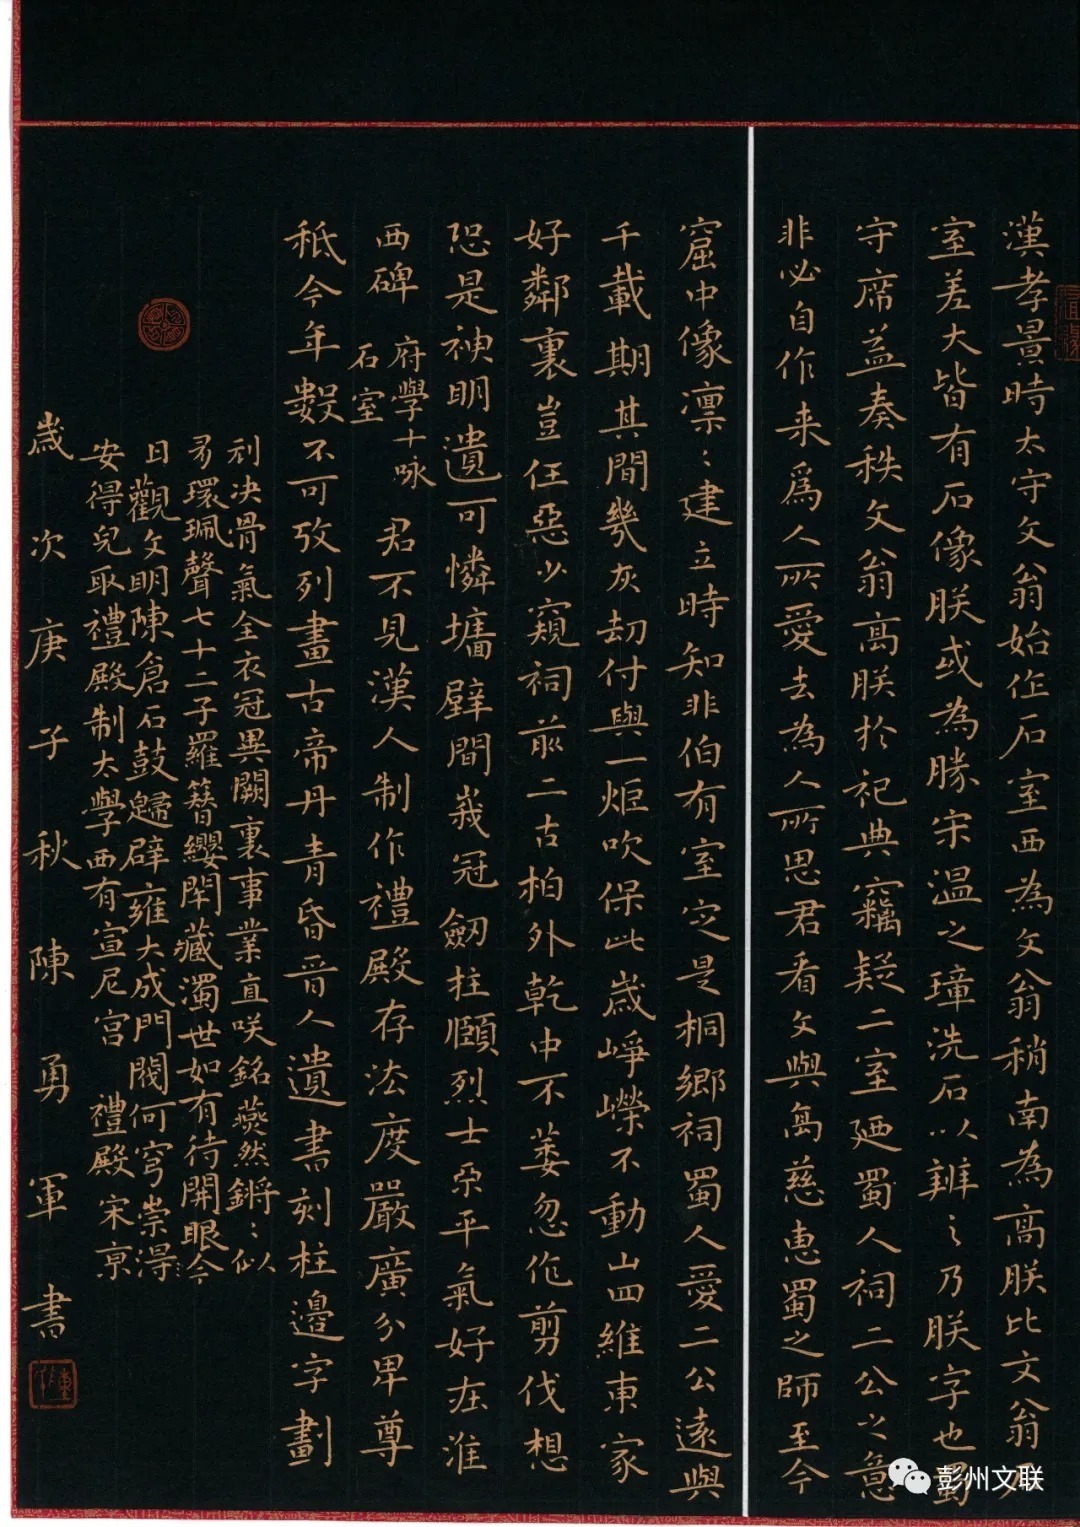 漢孝景時太守文翁始作石室西為文翁稍南為高朕比文翁
室差大皆有石像朕或為勝宋温之璋洗石以辨之乃朕字也蜀
守席益奏秩文翁高朕於祀典竊疑二室廼蜀人祠二公之意
非必自作来爲人所愛去為人所思君看文與高慈惠蜀之師至今
窟中像凛〻建立時知非伯有室定是桐鄉祠蜀人愛二公遠與
千載期其間幾灰劫付與一炬吹保此歲崢嶸不動山四維東家
好鄰裏豈任惡少窺祠前二古柏外乾中不萎忽作剪伐想
恐是神明遺可憐墻壁間峩冠劒拄頤烈士亦平氣好在淮
西碑 府學十咏
石室 君不見漢人制作禮殿存法度嚴廣分卑尊
秪今年數不可攷列畫古帝丹青昏晋人遺書刻柱邊字劃
利决骨氣全衣冠異闕裏事業直咲銘燕然鏘〻似
有環珮聲七十二子羅簪纓閈藏濁世如有待開眼今
日觀文明陳倉石鼓歸辟雍大成門閥何穹崇得
安得兒取禮殿制太學西有宣尼宫 禮殿宋京
歲次庚子秋陳勇軍書
彭州文联